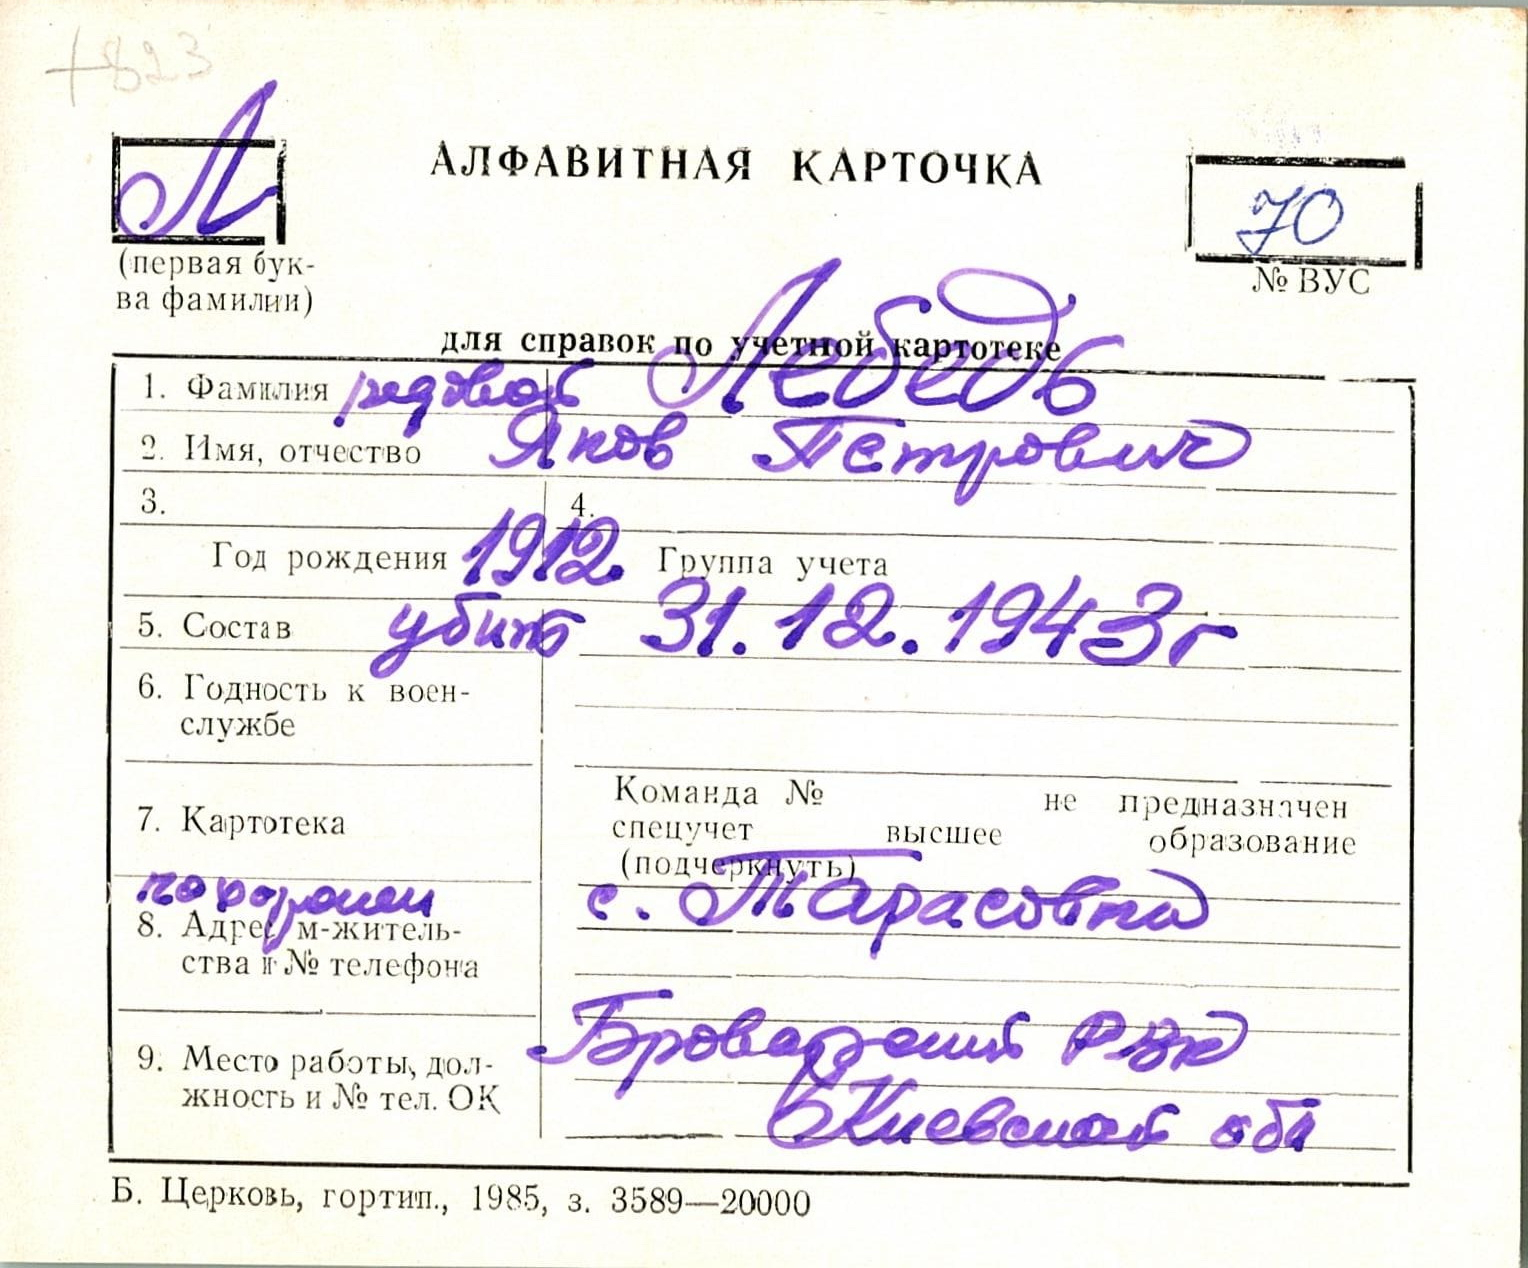 +823
Л
АЛФАВИТНАЯ КАРТОЧКА
70
(первая бук-
ва фамилии)
№ ВУС
для справок по учетной картотеке
1. Фамилия рядовой Лебедь
2. Имя, отчество Яков Петрович
3. 4.
Год рождения 1912. Группа учета
5. Состав убит 31.12.1943г
6. Годность к воен-
службе
Команда № не предназначен
7. Картотека
спецучет высшее образование
(подчеркнуть)
похоронен с. Тарасовка
8. Адрес м-житель-
ства и № телефона
Броварский РВК
9. Место работы, дол-
жность и № тел. ОК
Киевской обл
Б. Церковь, гортип., 1985, з. 3589—20000